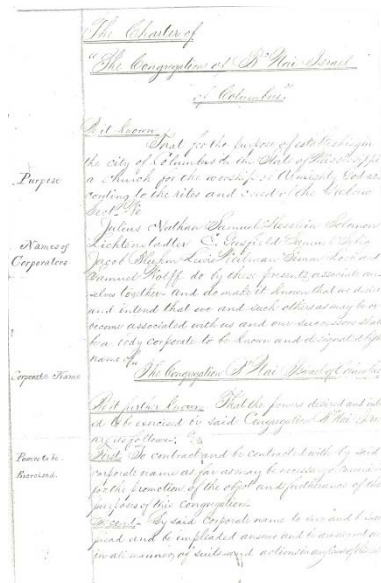 The Charter of
"The Congregation of B'Nai Israel
of Columbus"
Be it known
That for the purpose of establishing in
the city of Columbus in the State of Mississippi
Purpose
a church for the worship of Almighty God ac
cording to the rites and creed of the Hebrew
Sect, We
Julius Nathan Samuel Solomon
Names of
Corporators
Lichtenstadter Samuel
Jacob Lewis Simon and
Samuel Wolff do by these presents associate our
selves together and do make it known that we desire
and intend that we and such others as may be or
become associated with us and our successors shall
be a body corporate to be known and designated by the
name of
Corporate Name
"The Congregation B'Nai Israel of Columbus
Be it further known That the powers desired and inten
d to be exercised by said Congregation B'Nai Israel
are as follows:
Powers to be
Exercised.
First To contract and be contracted with by said
corporate name as far as may be necessary
for the promotion of the object and furtherance of the
purposes of this Congregation.
Second By said corporate name to sue and be sued
plead and be impleaded answer and be answered
in all manner of suits and actions